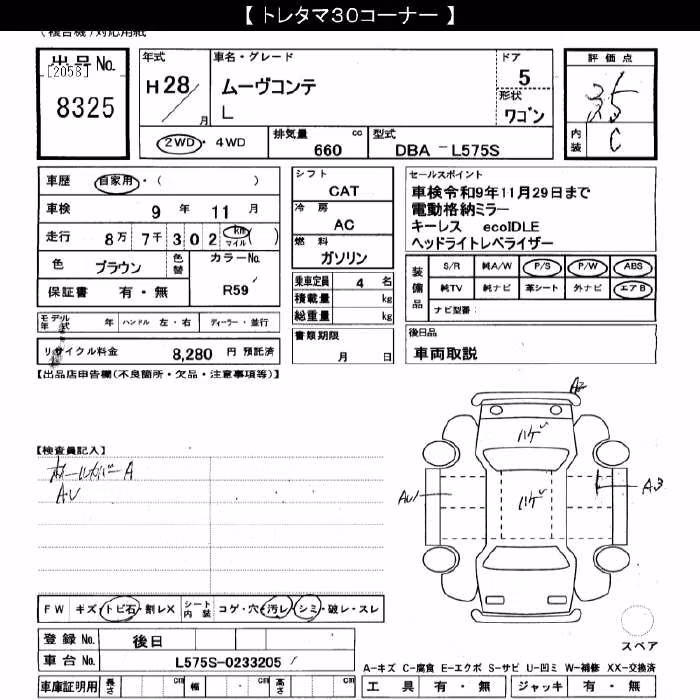 【 トレタマ30コーナー 】
(複合機)対応用紙
出品No.
[2058]
8325
年式
H28
月
車名・グレード
ムーヴコンテ
L
ドア
5
形状
ワゴン
評価点
3.5
内装
C
2WD・4WD
排気量 cc
660
型式
DBA -L575S
車歴 自家用・( )
車検 9 年 11 月
走行 8万 7千 302 km マイル ( )
色 ブラウン 色替
カラーNo.
R59
保証書 有・無
シフト
CAT
冷房
AC
燃料
ガソリン
乗車定員 4 名
積載量 kg
総重量 kg
セールスポイント
車検令和9年11月29日まで
電動格納ミラー
キーレス ecoIDLE
ヘッドライトレベライザー
装備品
S/R 純A/W P/S P/W ABS
純TV 純ナビ 革シート 外ナビ エアB
ナビ型番:
モデル年式 年 ハンドル 左・右 ディーラー・並行
リサイクル料金 8,280 円 預託済
書類期限
月 日
後日品
車両取説
【出品店申告欄(不良箇所・欠品・注意事項等)】
【検査員記入】
ホールカバーA
AU
A2
ハゲ
ハゲ
AU1
A3
FW キズ・トビ石・割レX シート内装 コゲ・穴・汚レ・シミ・破レ・スレ
登録No. 後日
車台No. L575S-0233205
車庫証明用 長さ cm 幅 cm 高さ cm
スペア
A-キズ C-腐食 E-エクボ S-サビ U-凹ミ W-補修 XX-交換済
工具 有・無 ジャッキ 有・無